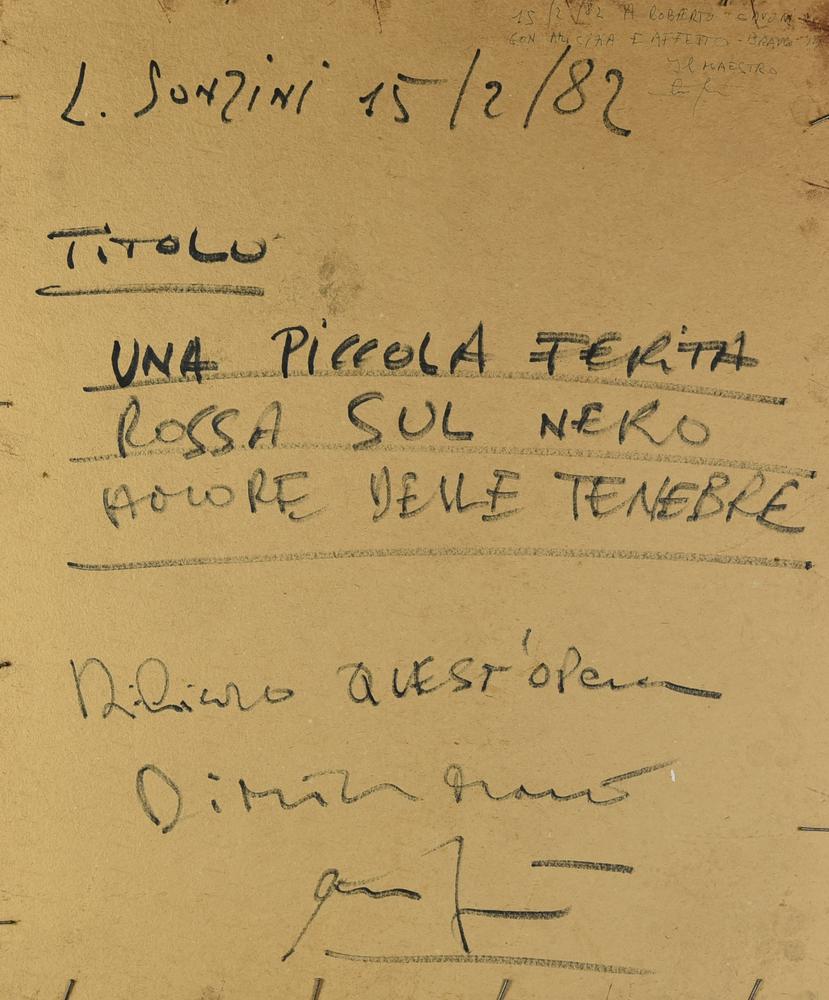 15/2/82 A ROBERTO
CON AMICIZIA E AFFETTO - BRAVO
Il MAESTRO
L. SONZINI 15/2/82
TITOLO
UNA PICCOLA FERITA
ROSSA SUL NERO
AMORE DELLE TENEBRE
Dichiaro QUEST'OPera
Di mia mano